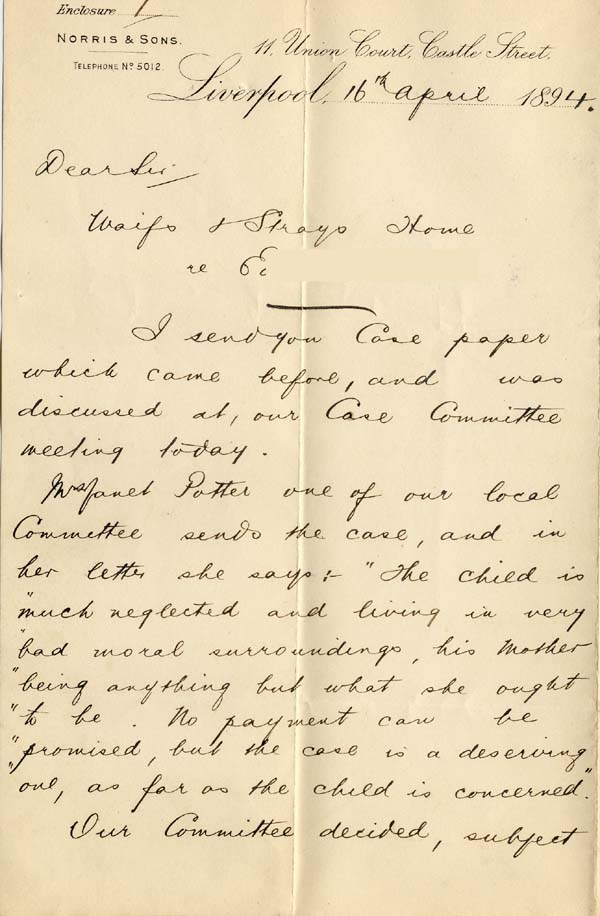 Enclosure 1
NORRIS & SONS.
TELEPHONE Nº 5012.
11, Union Court, Castle Street,
Liverpool, 16th April 1894.
Dear Sir
Waifs & Strays Home
re
I send you Case paper
which came before, and was
discussed at, our Case Committee
meeting today.
Mrs Janet Potter one of our local
Committee sends the case, and in
her letter she says:- "The child is
"much neglected and living in very
"bad moral surroundings, his Mother
"being anything but what she ought
"to be. No payment can be
"promised, but the case is a deserving
one, as far as the child is concerned."
Our Committee decided, subject